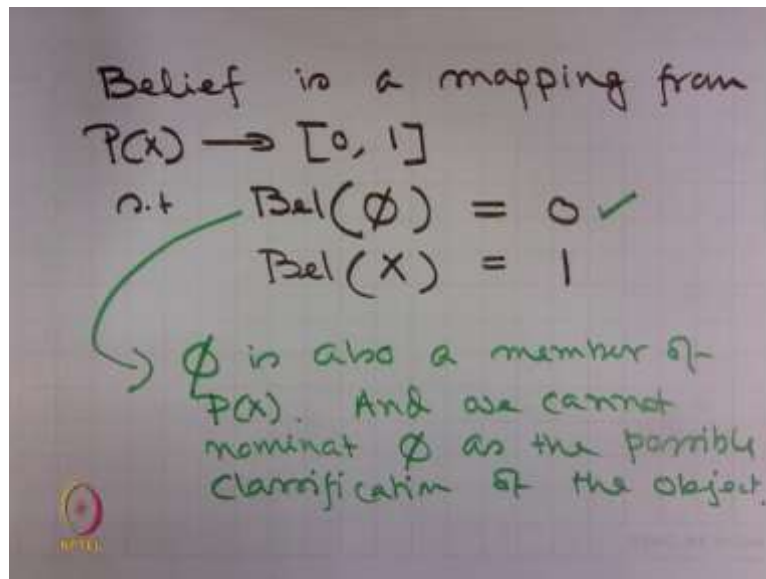 Belief is a mapping from
P(X) → [0, 1]
s.t Bel(∅) = 0 ✓
Bel(X) = 1
∅ is also a member of
P(X). And we cannot
nominat ∅ as the possible
classification of the object.
NPTEL